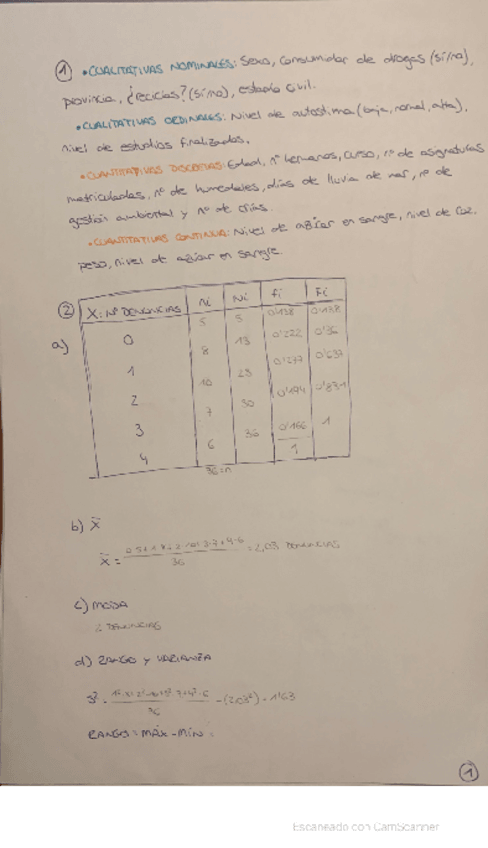 ① • CUALITATIVAS NOMINALES: Sexo, Consumidor de drogas (sí/no),
provincia, ¿reciclas? (sí/no), estado civil.
• CUALITATIVAS ORDINALES: Nivel de autoestima (baja, normal, alta),
nivel de estudios finalizados.
• CUANTITATIVAS DISCRETAS: Edad, nº hermanos, curso, nº de asignaturas
matriculadas, nº de humedales, días de lluvia de mar, nº de
gestión ambiental y nº de crías.
• CUANTITATIVAS CONTINUA: Nivel de azúcar en sangre, nivel de Co2,
peso, nivel de azúcar en sangre.
② X: Nº DENUNCIAS ni Ni fi Fi
a) 0 5 5 0'138 0'138
1 8 13 0'222 0'36
2 10 23 0'277 0'637
3 7 30 0'194 0'831
4 6 36 0'166 1
36=n 1
b) x̄
x̄ = = 2,03 DENUNCIAS
36
c) MODA
2 DENUNCIAS
d) RANGO Y VARIANZA
S² = - (2,03²) = 1'63
36
RANGO: MÁX - MÍN =
①
Escaneado con CamScanner